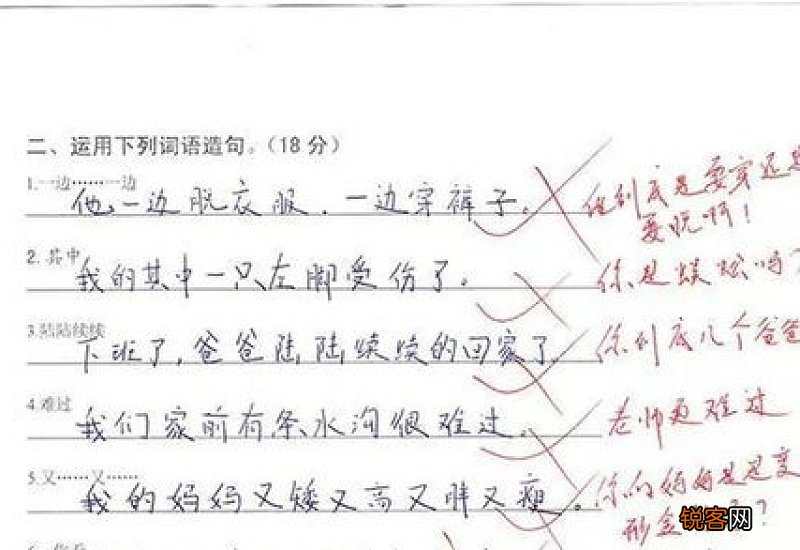 二、运用下列词语造句。(18分)
1.一边……一边
他一边脱衣服，一边穿裤子。
但到底是要穿还是
要脱啊！
2.其中
我的其中一只左脚受伤了。
你是蜈蚣吗？
3.陆陆续续
下班了，爸爸陆陆续续的回家了
你到底几个爸爸
4.难过
我们家前有条水沟很难过。
老师更难过
5.又……又……
我的妈妈又矮又高又胖又瘦。
你的妈妈是是变
形金 ？？
锐客网